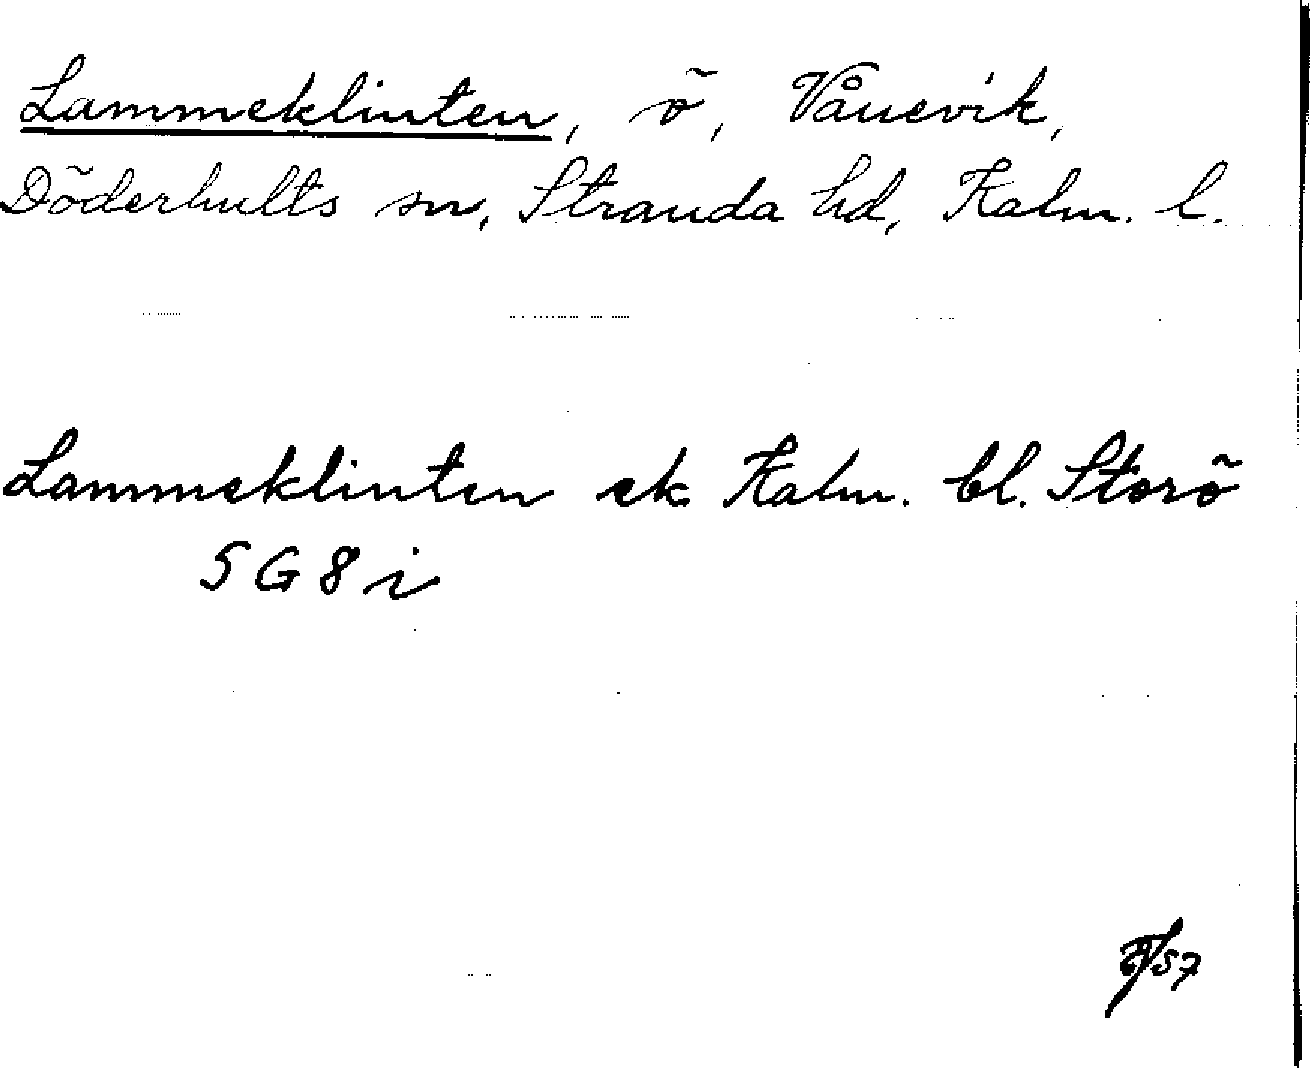 Lammeklinten, ö, Vånevik,
Döderhults sn, Stranda hd, Kalm. l.
Lammeklinten ek Kalm. bl. Storö
5 G 8 i